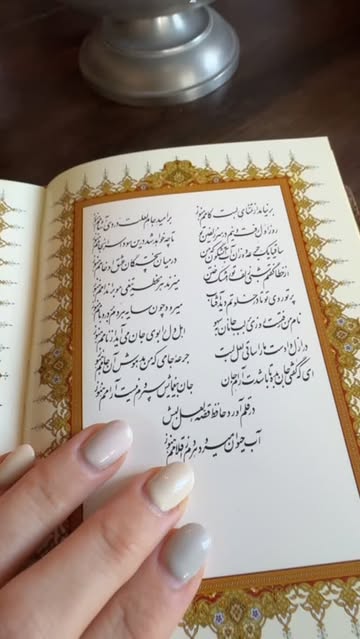 برنیامد از تمنای لبت کامم هنوز بر امید جام لعلت دردی آشامم هنوز
روز اول رفت دینم در سر زلفین تو تا چه خواهد شد درین سودا سرانجامم هنوز
ساقیا یک جرعه ده زان آب آتشگون که من در میان پختگان عشق او خامم هنوز
از خطا گفتم شبی زلف ترا مشک ختن میزند هر لحظه تیغی مو بر اندامم هنوز
پرتو روی تو تا در خلوتم دید آفتاب میرود چون سایه هر دم بر در و بامم هنوز
نام من رفتست روزی بر لب جانان بسهو اهل دل را بوی جان می آید از نامم هنوز
در ازل دادست ما را ساقی لعل لبت جرعه جامی که من مدهوش آن جامم هنوز
ای که گفتی جان بده تا باشدت آرام جان جان بغمهایش سپردم نیست آرامم هنوز
در قلم آورد حافظ قصه لعل لبش
آب حیوان میرود هر دم ز اقلامم هنوز